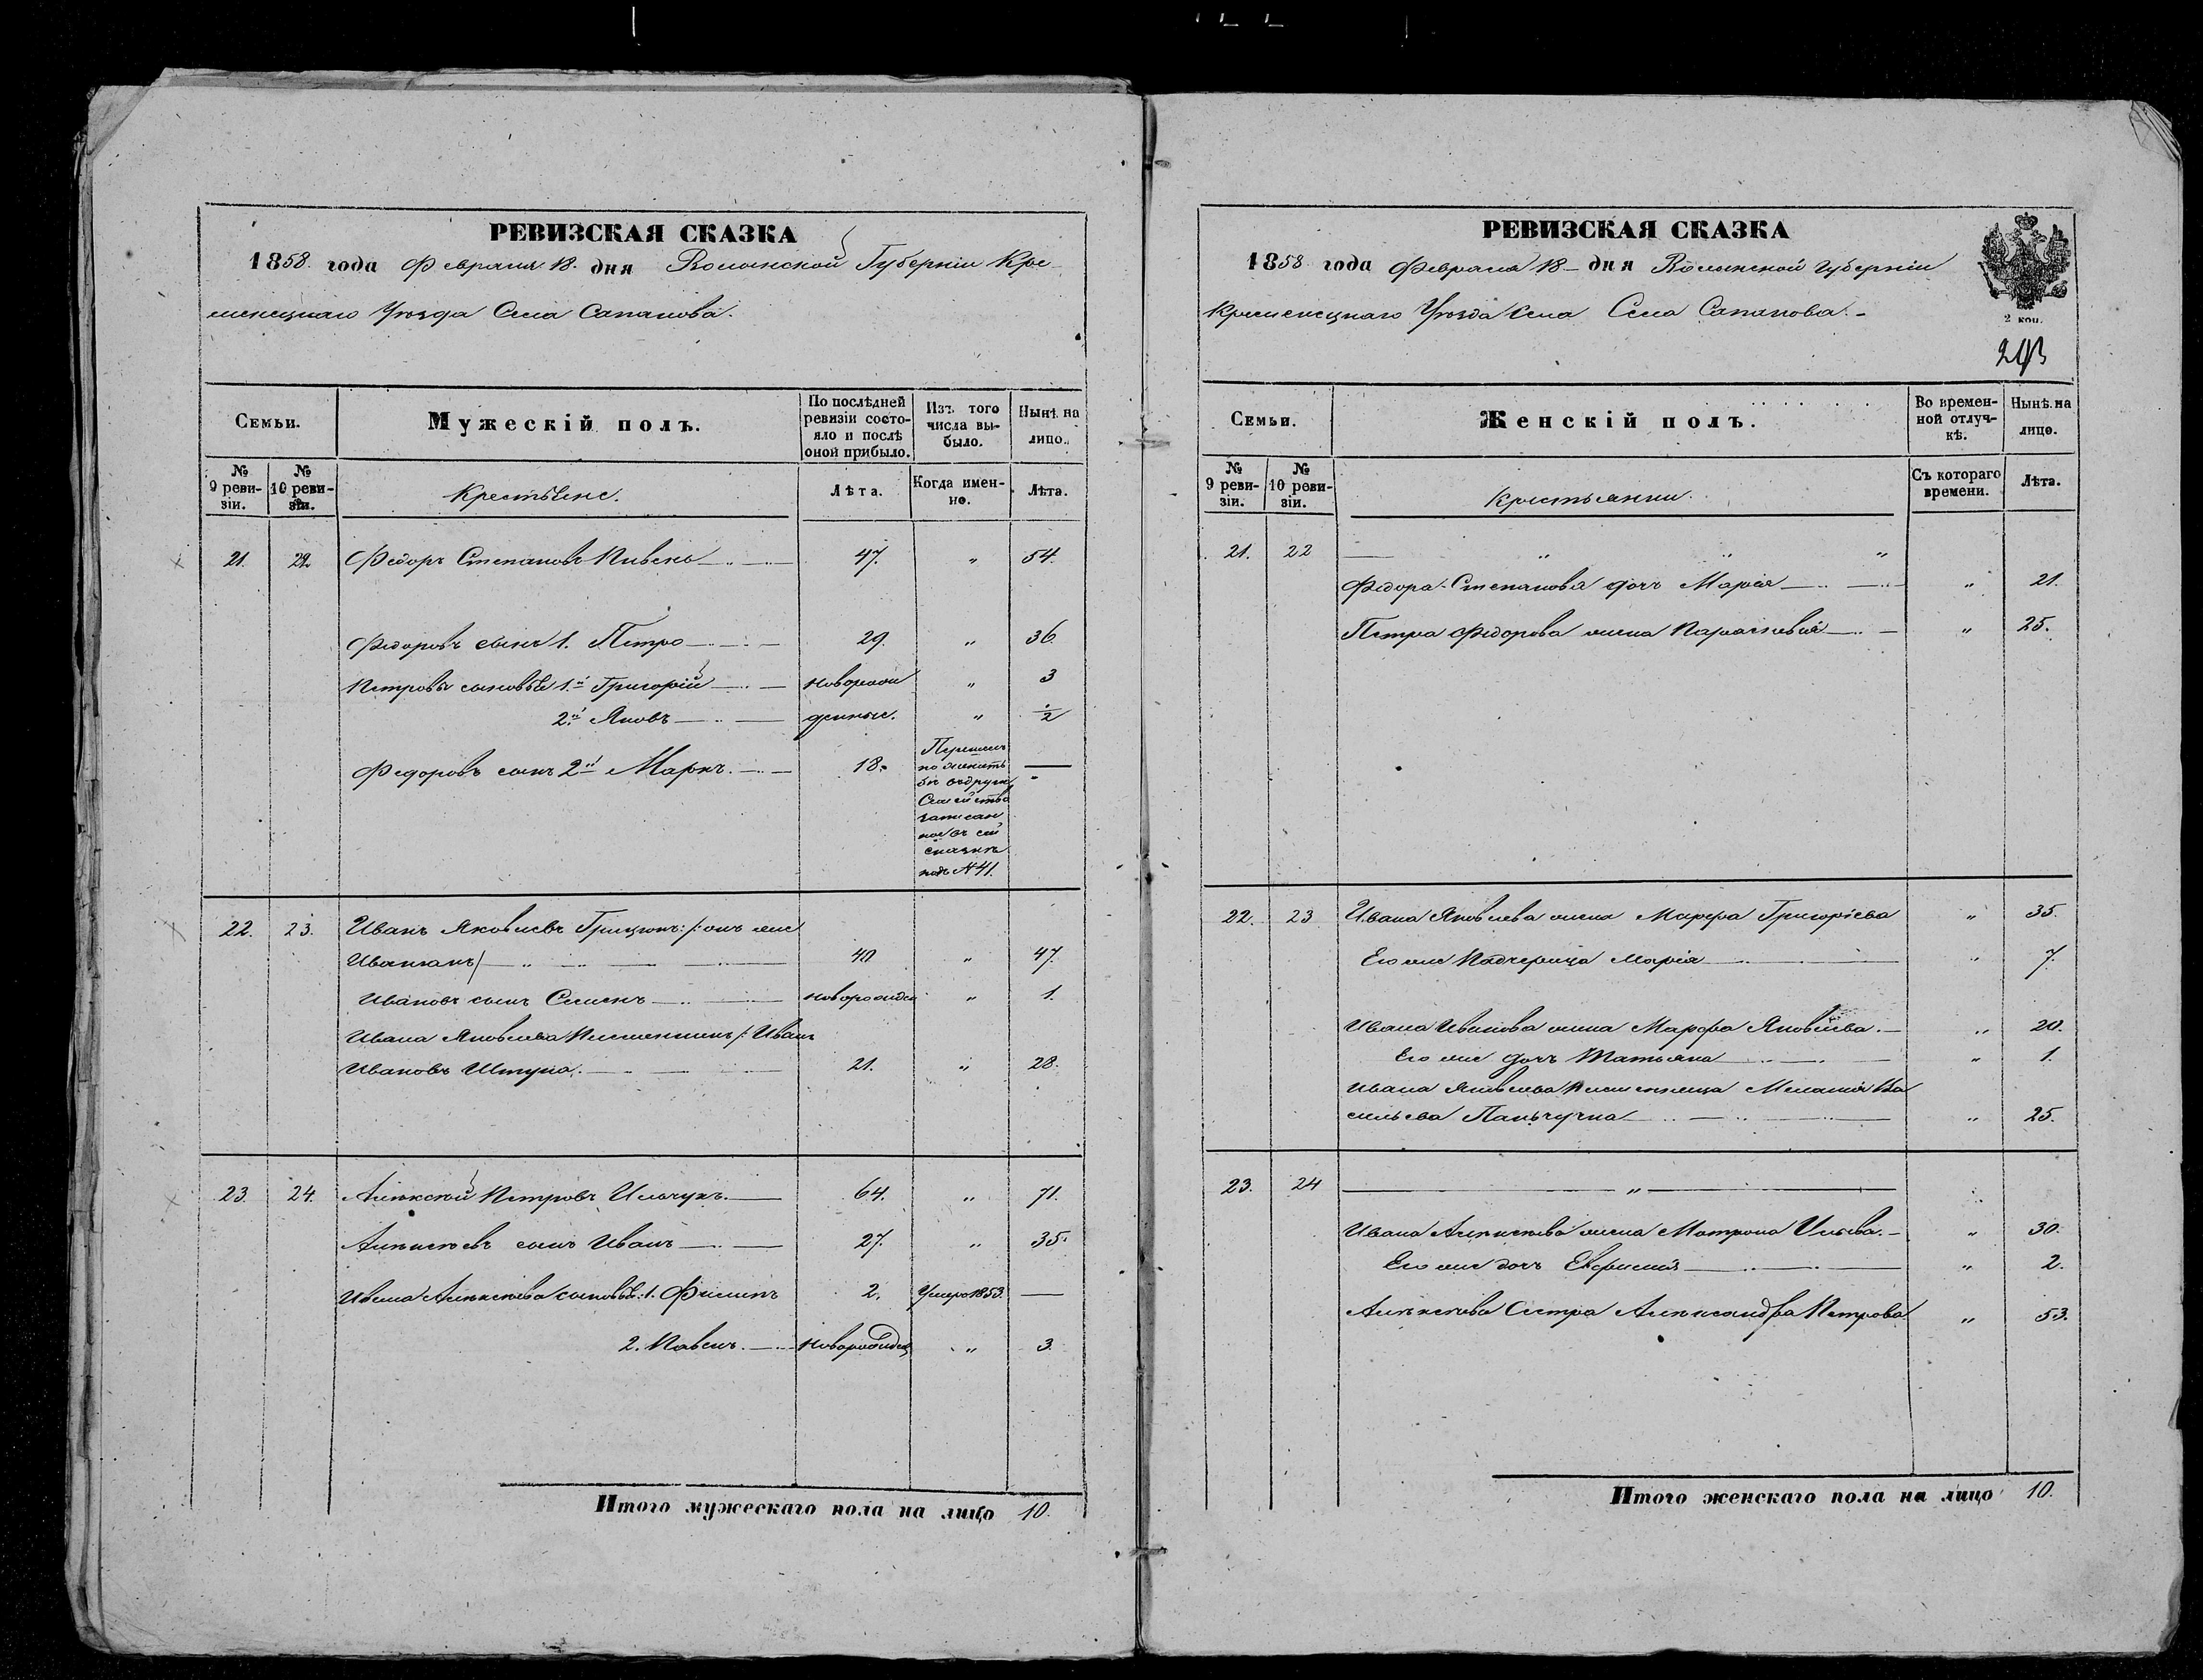 РЕВИЗСКАЯ СКАЗКА
1858 года Февраля 18 дня Волынской Губерніи Кре-
менецкаго Уѣзда Села Сапанова.
Семьи.
Мужескій полъ.
По послѣдней ревизіи состояло и послѣ оной прибыло.
Изъ того числа выбыло.
Нынѣ на лицо.
№ 9 ревизіи.
№ 10 ревизіи.
Крестьяне.
Лѣта.
Когда именно.
Лѣта.
21. 22. Федоръ Степановъ Пивень 47. " 54.
Федоровъ сынъ 1. Петро 29. " 36.
Петровы сыновья 1й Григорій новорож " 3
2й Яковъ денные. " ½
Федоровъ сынъ 2й Маркъ. 18.
въ другое
Семейство
записан
ное въ сей
сказкѣ
подъ № 41.
22. 23. Иванъ Яковлевъ Грицюкъ /:онъ же
40 " 47.
Ивановъ сынъ Семенъ новорожден " 1.
Ивана Яковлева Племянникъ /: Иванъ
Ивановъ Штупа. 21. " 28.
23. 24. Алексѣй Петровъ Ильчукъ. 64. " 71.
Алексѣевъ сынъ Иванъ 27. " 35.
Ивана Алексѣева сыновья: 1. Филипъ 2. Умеръ 1853.
2. Павелъ. новорожден " 3.
Итого мужескаго пола на лицо 10.
РЕВИЗСКАЯ СКАЗКА
1858 года Февраля 18 дня Волынской Губерніи
Кременецкаго Уѣзда Села Села Сапанова.
2 коп.
Семьи.
Женскій полъ.
Во временной отлучкѣ.
Нынѣ на лицо.
№ 9 ревизіи.
№ 10 ревизіи.
Крестьянки.
Съ котораго времени.
Лѣта.
21. 22 " " "
Федора Степанова дочь Марія " 21.
Петра Федорова жена Параскевія " 25.
22. 23 Ивана Яковлева жена Марфа Григоріева " 35.
Его же Падчерица Марія " 7.
Ивана Иванова жена Марфа Яковлева. " 20.
Его же дочь Татьяна " 1.
Ивана Яковлева Племянница Меланія Ва
сильева " 25.
23. 24 "
Ивана Алексѣева жена Матрона Ильева. " 30.
Его же дочь Евфимія " 2.
Алексѣева Сестра Александра Петрова " 53.
Итого женскаго пола на лицо 10.